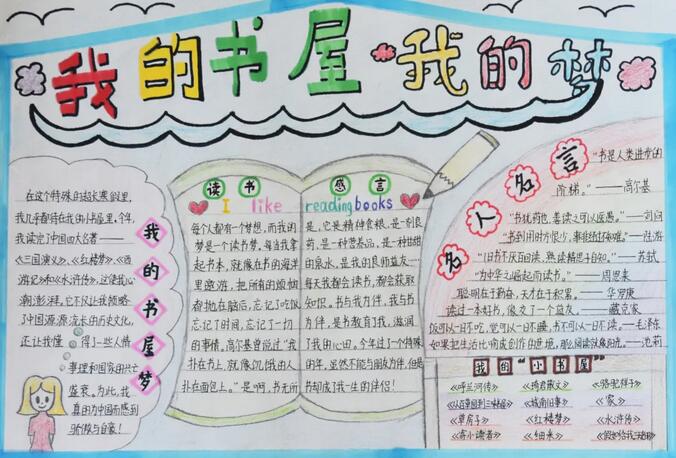 我的书屋·我的梦
在这个特殊的超长寒假里，
我几乎都待在我的小书屋里，今年，
我读完了中国四大名著——
《三国演义》、《红楼梦》、《西
游记》和《水浒传》，这使我心
潮澎湃。它不仅让我领略
了中国源源流长的历史文化，
还让我懂得了一些人情
事理和国家的兴亡
盛衰。为此，我
真的为中国而感到
骄傲与自豪！
我的书屋梦
读书感言
I like reading books
每个人都有一个梦想，而我的
梦是一个读书梦。每当我拿
起书本，就像在书的海洋
里遨游，把所有的烦恼
都抛在脑后，忘记了吃饭
忘记了时间，忘记了一切
的事情。高尔基曾说过“我
扑在书上，就像饥饿的人
扑在面包上。”是啊，书无所
是，它是精神食粮，是一剂良
药，是一种营养品，是一种甘甜
的泉水，是我的良师益友……
每天我都会读书，都会获取
知识。书与我为伴，我与书
为伴，是书教育了我，滋润
了我的心田。今年过了个特殊
的年，虽然不能与朋友为伴，但是
书却成了我一生的伴侣！
名人名言
“书是人类进步的
阶梯。”——高尔基
“书犹药也，善读之可以医愚。”——刘向
“书到用时方恨少，事非经过不知难。”——陆游
“旧书不厌百回读，熟读精思子自知。”——苏轼
“为中华之崛起而读书。”——周恩来
聪明在于勤奋，天才在于积累。——华罗庚
读过一本好书，像交了一个益友。——臧克家
饭可以一日不吃，觉可以一日不睡，书不可以一日不读。——毛泽东
如果把生活比喻成创作的意境，那么阅读就像阳光。——池莉
我的“小书屋”
《呼兰河传》 《骑鹅散文》 《骆驼祥子》
《从百草园到三味书屋》 《城南旧事》 《家》
《草房子》 《红楼梦》 《水浒传》
《寄小读者》 《细米》 《假如给我三天光明》